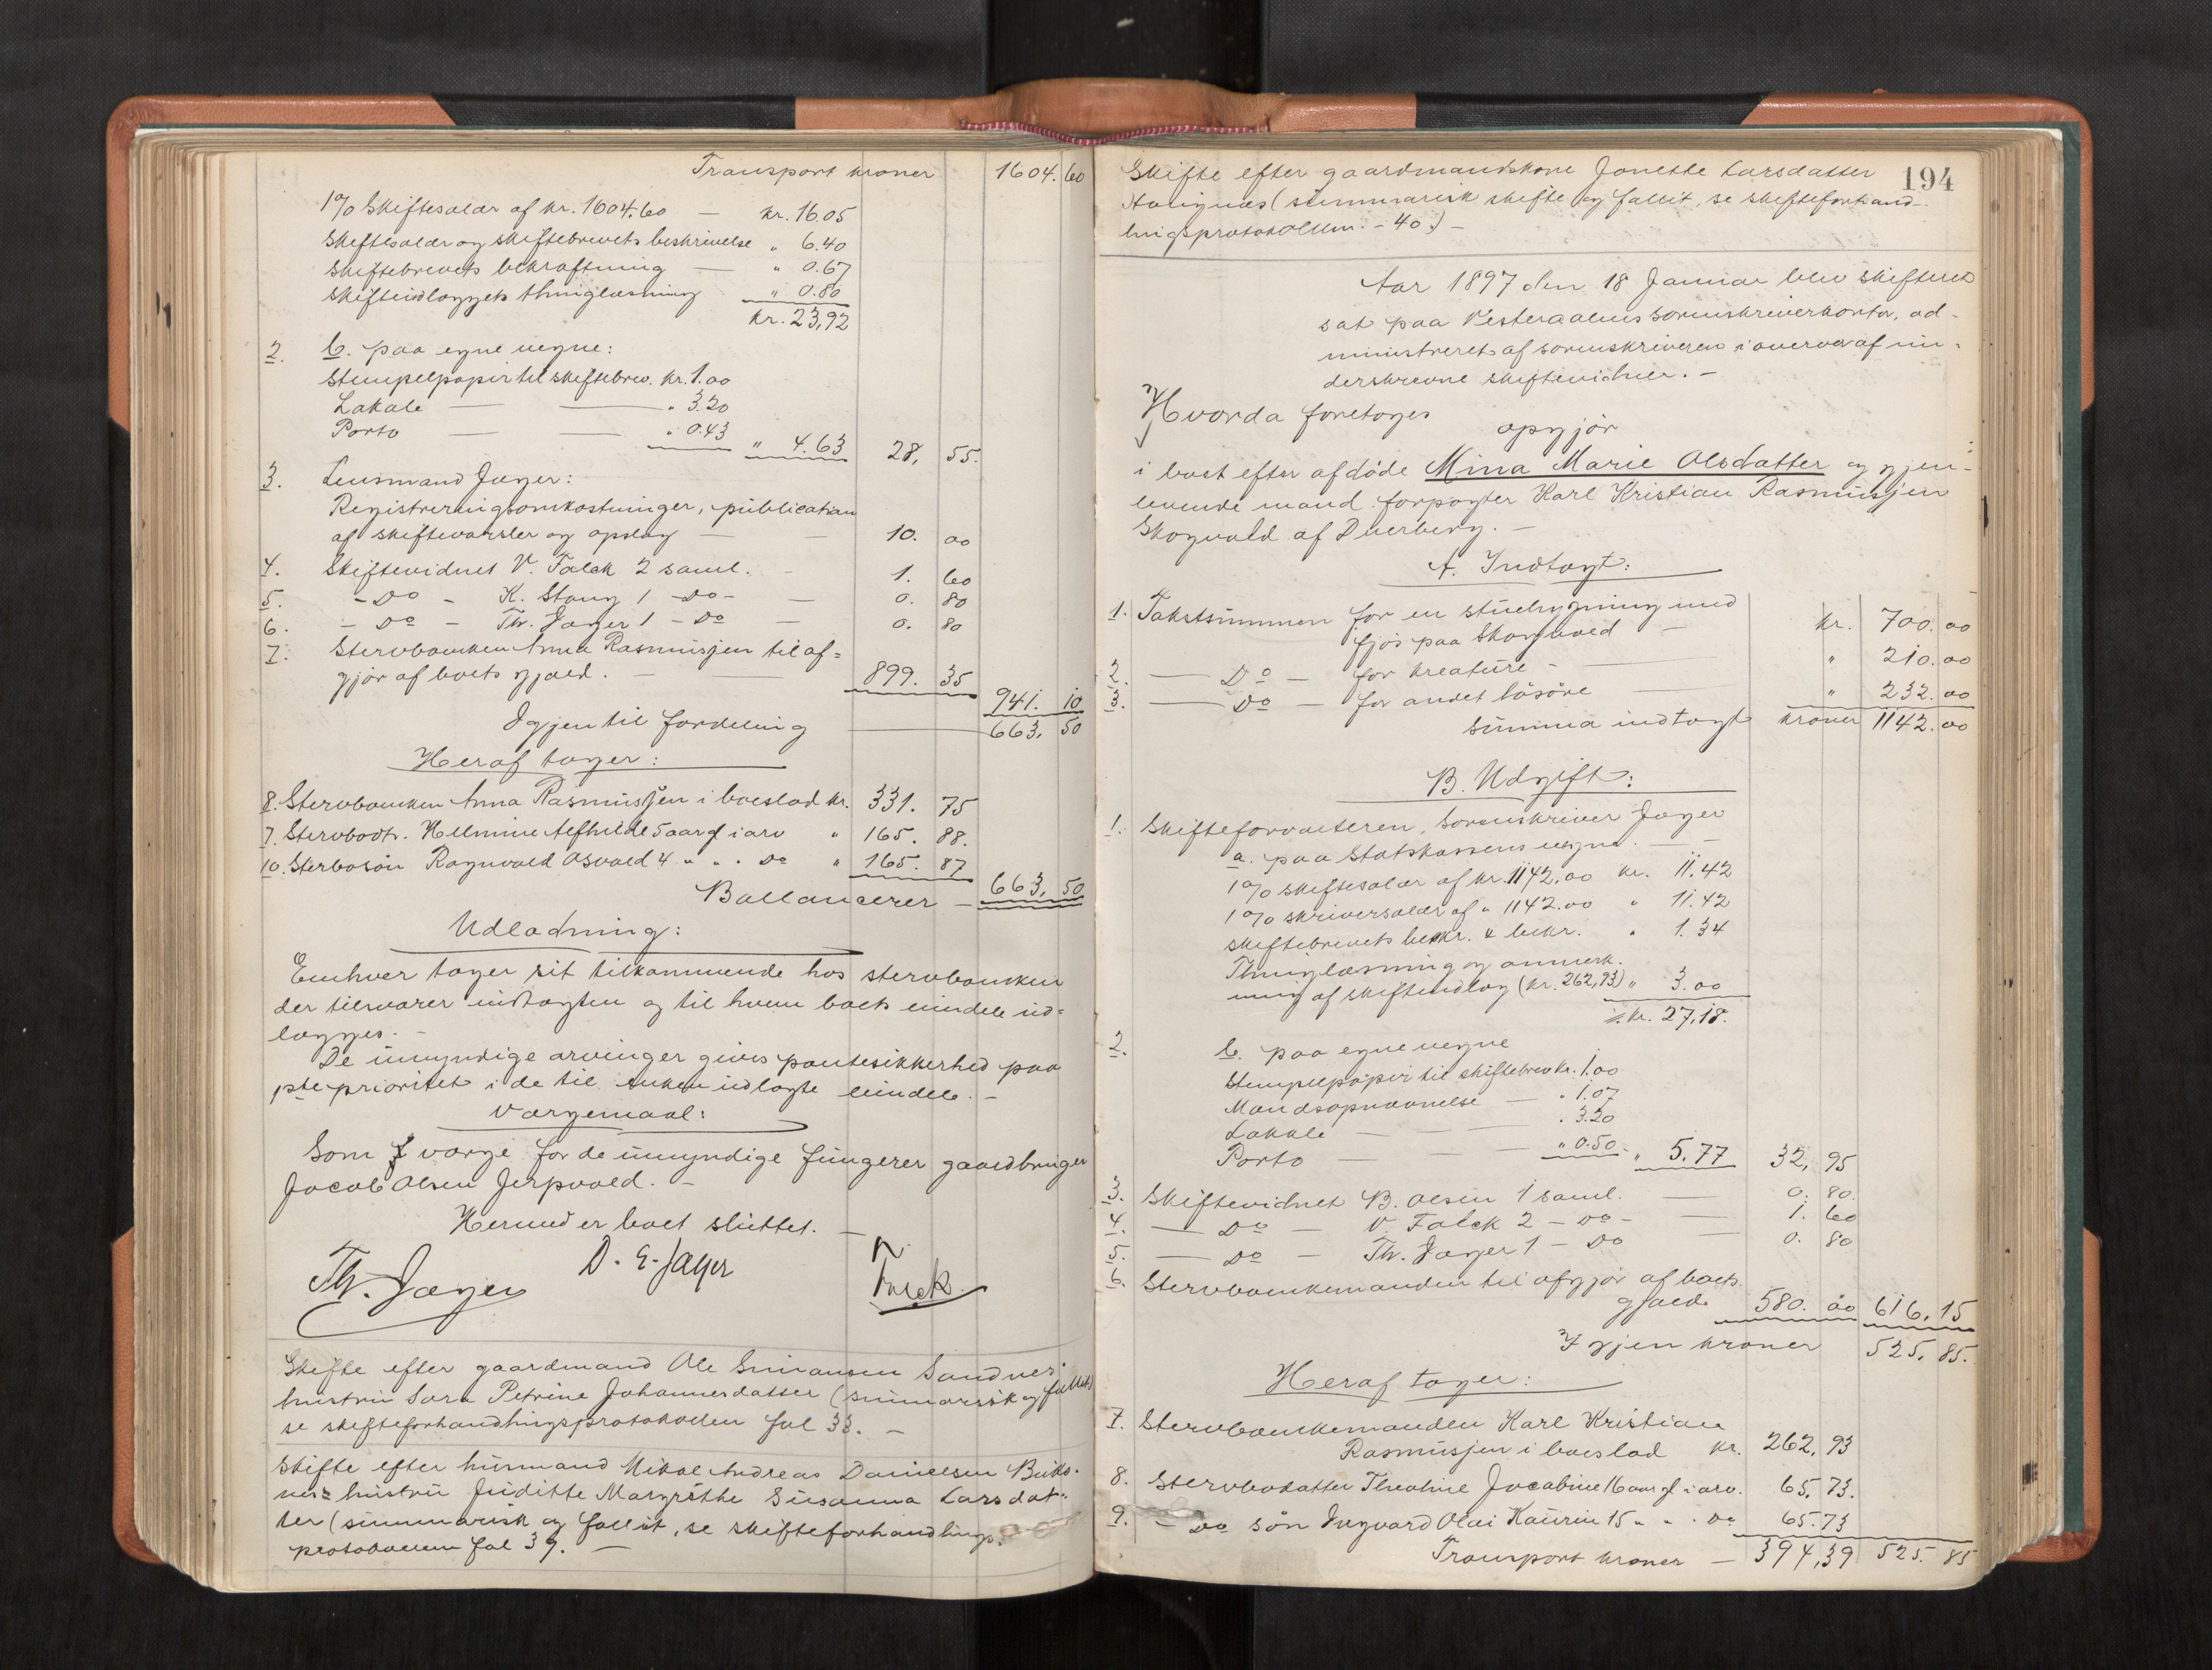 Transport kroner 1604.60
1% Skiftesalær af kr. 1604.60 — kr. 16.05
Skiftesalær og skiftebrevets beskrivelse " 6.40
Skiftebrevets bekræftning — " 0.67
Skifteudlæggets thinglæsning " 0.80
kr. 23,92
2. b. paa egne vegne:
Stempelpapir til skiftebrev. kr. 1.00
Lokale — — " 3.20
Porto — — " 0.43 " 4.63 28, 55.
3. Lensmand Jæger:
Registreringsomkostninger, publication
af skiftevarsler og opslag — — 10. 00
4. Skiftevidnet V. Falck 2 saml. - 1. 60
5. - Do - K. Stang 1 - Do - — 0. 80
6. - Do - Th. Jæger 1 - Do — 0. 80
7. Stervboenken Anna Rasmussen til af=
gjør af boets gjæld. — 899. 35
941. 10
Igjen til fordeling 663. 50
Heraf tager:
8. Stervboenken Anna Rasmussen i boeslod kr. 331. 75
7. Stervbodtr. Helmine Alfhilde 5 aar gl i arv " 165. 88.
10. Sterbosøn Ragnvald Osvald 4 " " . Do " 165. 87
Ballancerer — 663, 50
Udlodning:
Enhver tager sit tilkommende hos stervboenken
der tilsvarer indtægten og til hvem boets eiendele ud=
lægges. -
De umyndige arvinger gives pantesikkerhed paa
1ste prioritet i de til enken udlagte eiendele. -
Værgemaal:
Som værge for de umyndige fungerer gaardbruger
Jacob Olsen Jerpvold. -
Hermed er boet sluttet. —
Th. Jæger D. E. Jæger V Falck
Skifte efter gaardmand Ole Sørensen Sandnes'
hustru Sara Petrine Johannesdatter (summarisk og fallit)
se skifteforhandlingsprotokollen fol 33. —
Skifte efter husmand Mikal Andreas Danielsen Buks-
nes= hustru Juditte Margrethe Susanna Larsdat=
ter (summarisk og fallit, se skifteforhandlings.
protokollen fol 39. —
Skifte efter gaardmandskone Jonette Larsdatter 194
Haugnæs (summarisk skifte og fallit, se skifteforhand-
lingsprotokollen. - 40.) -
Aar 1897 den 18 Januar blev skifteret
sat paa Vesteraalens sorenskriverkontor, ad-
ministreret af sorenskriveren i overvær af un-
derskrevne skiftevidner. -
Hvorda foretoges
opgjør
i boet efter afdøde Mina Marie Olsdatter og gjen-
levende mand forpagter Karl Kristian Rasmussen
Skogvold af Dverberg. -
A. Indtægt:
1. Takstsummen for en stuebygning med
fjøs paa Skogvold — kr. 700. 00
2. — Do — for kreature - " 210. 00
3. — Do — for andet løsøre — " 232. 00
Summa indtægt kroner 1142. 00
B. Udgift:
1. Skifteforvalteren, Sorenskriver Jæger
a. paa Statskassens vegne. —
1% skiftesalær af kr. 1142,00 kr. 11.42
1% skriversalær af " 1142.00 " 11.42
Skiftebrevets beskr. & bekr. " 1.34
Thinglæsning og anmerk.
ning af skifteudlæg (kr. 262,93) " 3.00
kr. 27,18.
2. b. paa egne vegne
Stempelpapir til skiftebrev kr. 1.00
Mandsopnævnelse — " 1.07
Lokale — — " 3.20
Porto — — " 0.50 - " 5.77 32, 95
3. Skiftevidnet B. Olsen 1 saml. — 0. 80.
4. — Do — V. Falck 2 — Do - — 1. 60
5. — Do — Th. Jæger 1 — Do — 0. 80
6. Stervboenkemanden til afgjør af boets
gjæld 580. 00 616, 15
Igjen kroner 525, 85.
Heraf tager:
7. Stervboenkemanden Karl Kristian
Rasmussen i boeslod kr. 262, 93
8. Stervbodatter Theoline Jacobine 16 aar gl i arv. 65, 73.
9. - Do søn Ingvard Olai Kaurin 15 " " . Do 65.73
Transport kroner — 394,39 525. 85